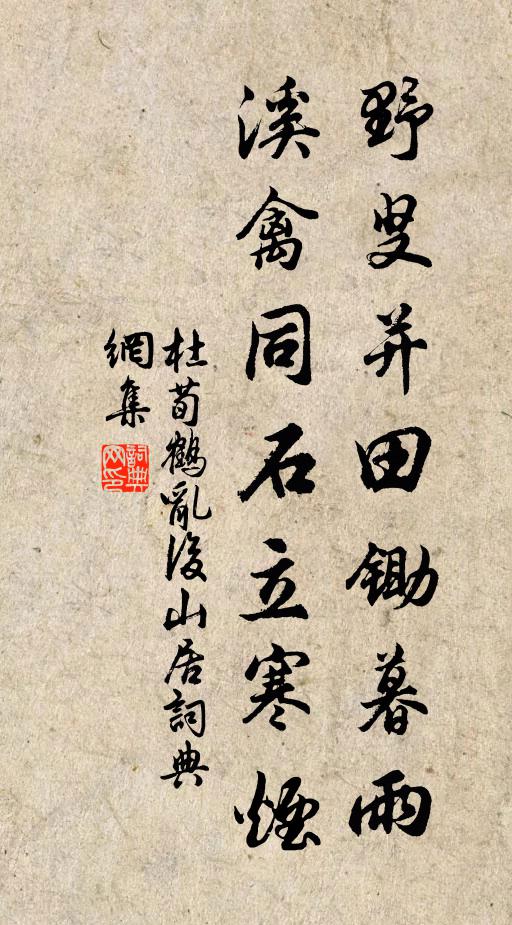 野叟并田鋤暮雨
溪禽同石立寒煙
杜荀鶴亂後山居詞典
網集
詞典
网印